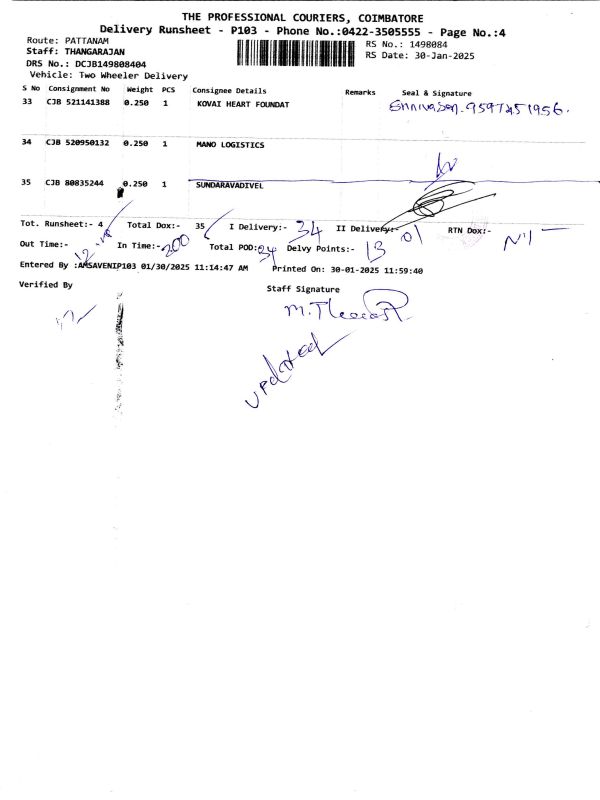 THE PROFESSIONAL COURIERS, COIMBATORE
Delivery Runsheet - P103 - Phone No.:0422-3505555 - Page No.:4
Route: PATTANAM
RS No.: 1498084
Staff: THANGARAJAN
RS Date: 30-Jan-2025
DRS No.: DCJB149808404
Vehicle: Two Wheeler Delivery
S No Consignment No Weight PCS Consignee Details Remarks Seal & Signature
33 CJB 521141388 0.250 1 KOVAI HEART FOUNDAT
34 CJB 520950132 0.250 1 MANO LOGISTICS
35 CJB 80835244 0.250 1 SUNDARAVADIVEL
Tot. Runsheet:- 4 Total Dox:- 35 I Delivery:- 34 II Delivery:- 01 RTN Dox:- Nil
Out Time:- In Time:- 200 Total POD: 34 Delvy Points:- 13
Entered By :AMSAVENIP103 01/30/2025 11:14:47 AM Printed On: 30-01-2025 11:59:40
Verified By Staff Signature
updated